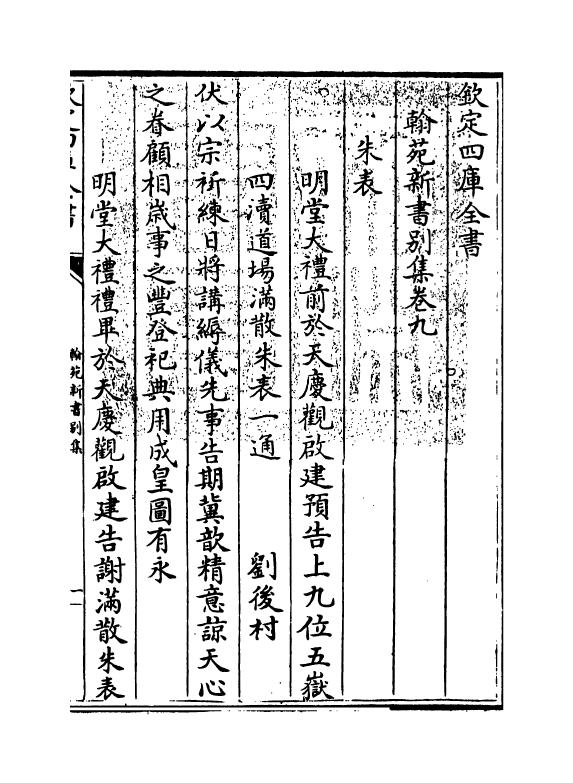 欽定四庫全書
翰苑新書別集卷九
朱表
明堂大禮前於天慶觀啟建預告上九位五嶽
四瀆道場滿散朱表一通 劉後村
伏以宗祈練日將講縟儀先事告期冀歆精意諒天心
之眷顧相歲事之豐登祀典用成皇圖有永
明堂大禮禮畢於天慶觀啟建告謝滿散朱表
翰苑新書別集
一